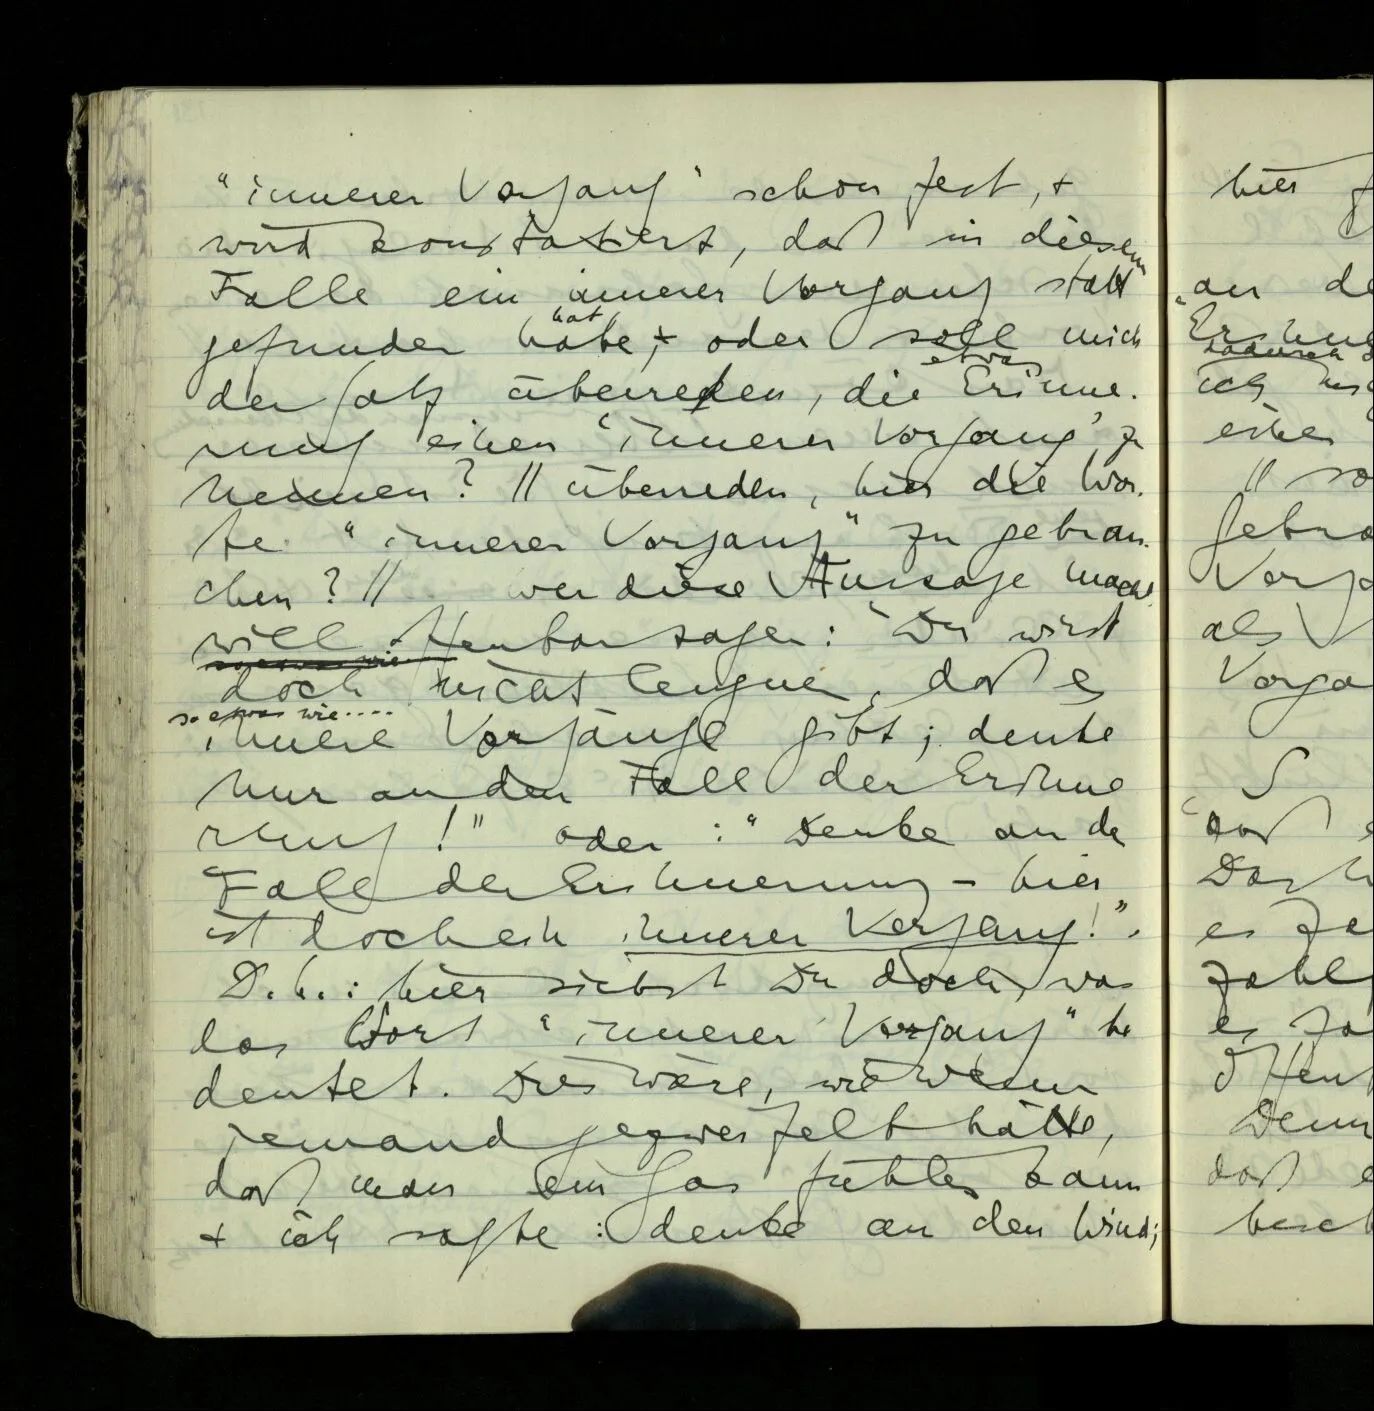 "innerer Vorgang" schon fest, +
wird konstatiert, daß in diesem
Falle ein innerer Vorgang statt
hat
gefunden habe, + oder soll mich
etwas
der Satz überreden, die Erinne-
rung einen 'inneren Vorgang' zu
nennen? // überreden, hier die Wor-
te "innerer Vorgang" zu gebrau-
chen? // wer diese Aussage macht
will offenbar sagen: "Du wirst
so etwas wie
doch nicht leugnen, daß es
so etwas wie....
innere Vorgänge gibt; denke
nur an den Fall der Erinne
rung!" oder: "Denke an den
Fall der Erinnerung – hier
ist doch ein innerer Vorgang!".
D.h.: hier siehst Du doch, was
das Wort "innerer Vorgang" be
deutet. Dies wäre, wie wenn
jemand gezweifelt hätte,
daß man ein Gas fühlen kann
+ ich sagte: denke an den Wind;
hier
an
ich
einen
// so
als
Vorga
daß
es
es
Denn
daß